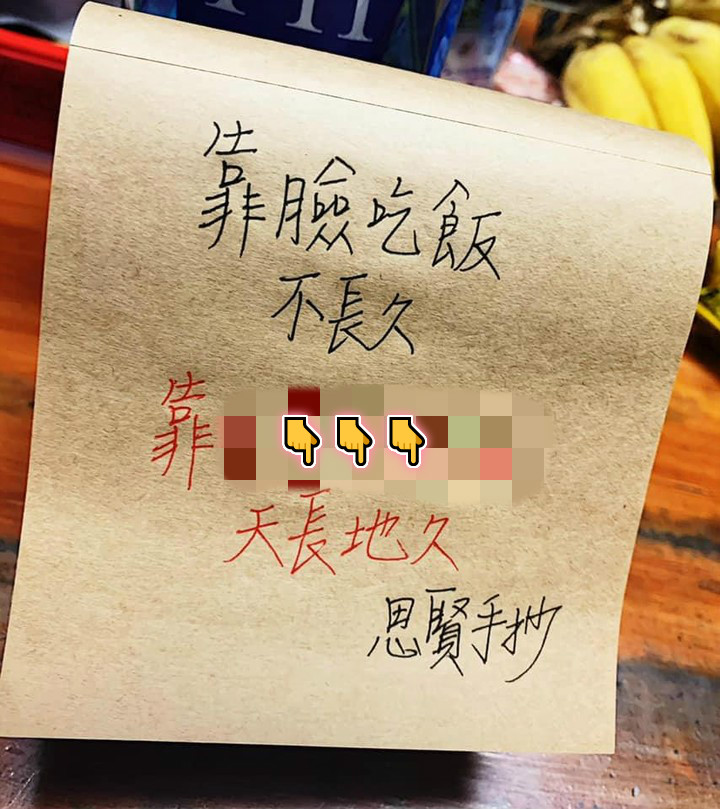 靠臉吃飯
不長久
靠
天長地久
思賢手抄